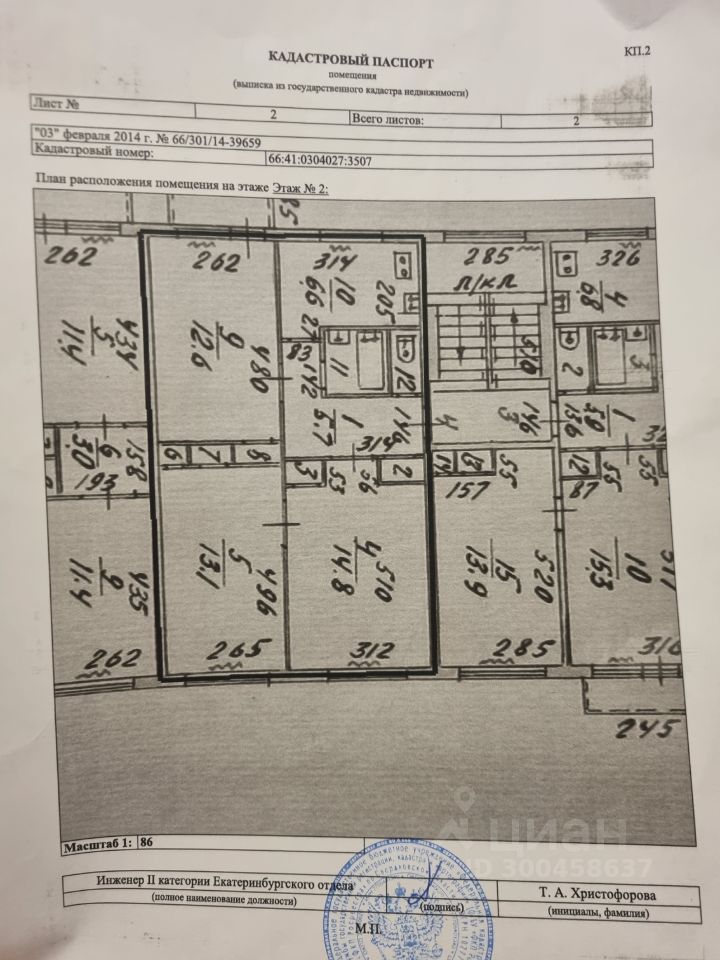 КП.2
КАДАСТРОВЫЙ ПАСПОРТ
помещения
(выписка из государственного кадастра недвижимости)
Лист № 2 Всего листов: 2
"03" февраля 2014 г. № 66/301/14-39659
Кадастровый номер: 66:41:0304027:3507
План расположения помещения на этаже Этаж № 2:
262 262 314 285 326
л/кл
434 5 11.4
9 12.6 480
10 6.6 205
83 142 11 12
1 5.7 314 146
4 3 146 510
4 68
2 3
1 5.0 136
6 3.0 158 193
6 7 8
3 53 56 2
14 13 55
157
12 55 87
9 11.4 435
5 13.1 496
4 14.8 510
15 13.9 520
10 15.3
262 265 312 285 316
245
Масштаб 1: 86
циан
ID 300458637
Инженер II категории Екатеринбургского отдела
(полное наименование должности)
(подпись)
Т. А. Христофорова
(инициалы, фамилия)
М.П.